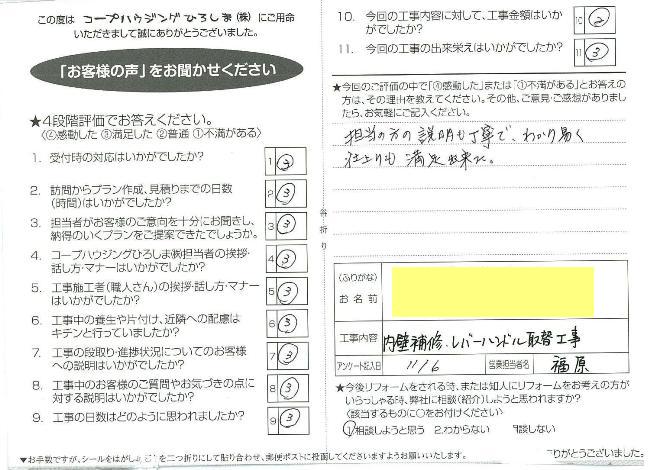 この度は コープハウジングひろしま(株) にご用命
いただきまして誠にありがとうございました。
「お客様の声」をお聞かせください
★4段階評価でお答えください。
〈④感動した ③満足した ② 普通 ①不満がある〉
1. 受付時の対応はいかがでしたか?
1 ③
2. 訪問からプラン作成、見積りまでの日数
(時間)はいかがでしたか?
2 ③
3. 担当者がお客様のご意向を十分にお聞きし、
納得のいくプランをご提案できたでしょうか。
3 ③
4. コープハウジングひろしま㈱担当者の挨拶・
話し方・マナーはいかがでしたか?
4 ③
5. 工事施工者(職人さん)の挨拶・話し方・マナー
はいかがでしたか?
5 ③
6. 工事中の養生や片付け、近隣への配慮は
キチンと行っていましたか?
6 ③
7. 工事の段取り・進捗状況についてのお客様
への説明はいかがでしたか?
7 ③
8. 工事中のお客様のご質問やお気づきの点に
対する説明はいかがでしたか?
8 ③
9. 工事の日数はどのように思われましたか?
9 ③
谷折り
10. 今回の工事内容に対して、工事金額はいか
がでしたか?
10 ②
11. 今回の工事の出来栄えはいかがでしたか?
11 ③
★今回のご評価の中で「④感動した」または「①不満がある」とお答え
の方は、その理由を教えてください。その他、ご意見・ご感想がありまし
たら、お気軽にご記入ください。
担当の方の説明も丁寧で、わかり易く
仕上りも満足出来た。
(ふりがな)
お 名 前
工事内容 内壁補修・レバーハンドル取替工事
アンケート記入日 11/6 営業担当者名 福原
★今後リフォームをされる時、または知人にリフォームをお考えの方が
いらっしゃる時、弊社に相談(紹介)しようと思われますか?
(該当するものに○をお付けください)
①相談しようと思う 2.わからない 談しない
▼お手数ですが、シールをはがし 二つ折りにして貼り合わせ、郵便ポストに投函してくださいますようお願いいたします。
りがとうございました。